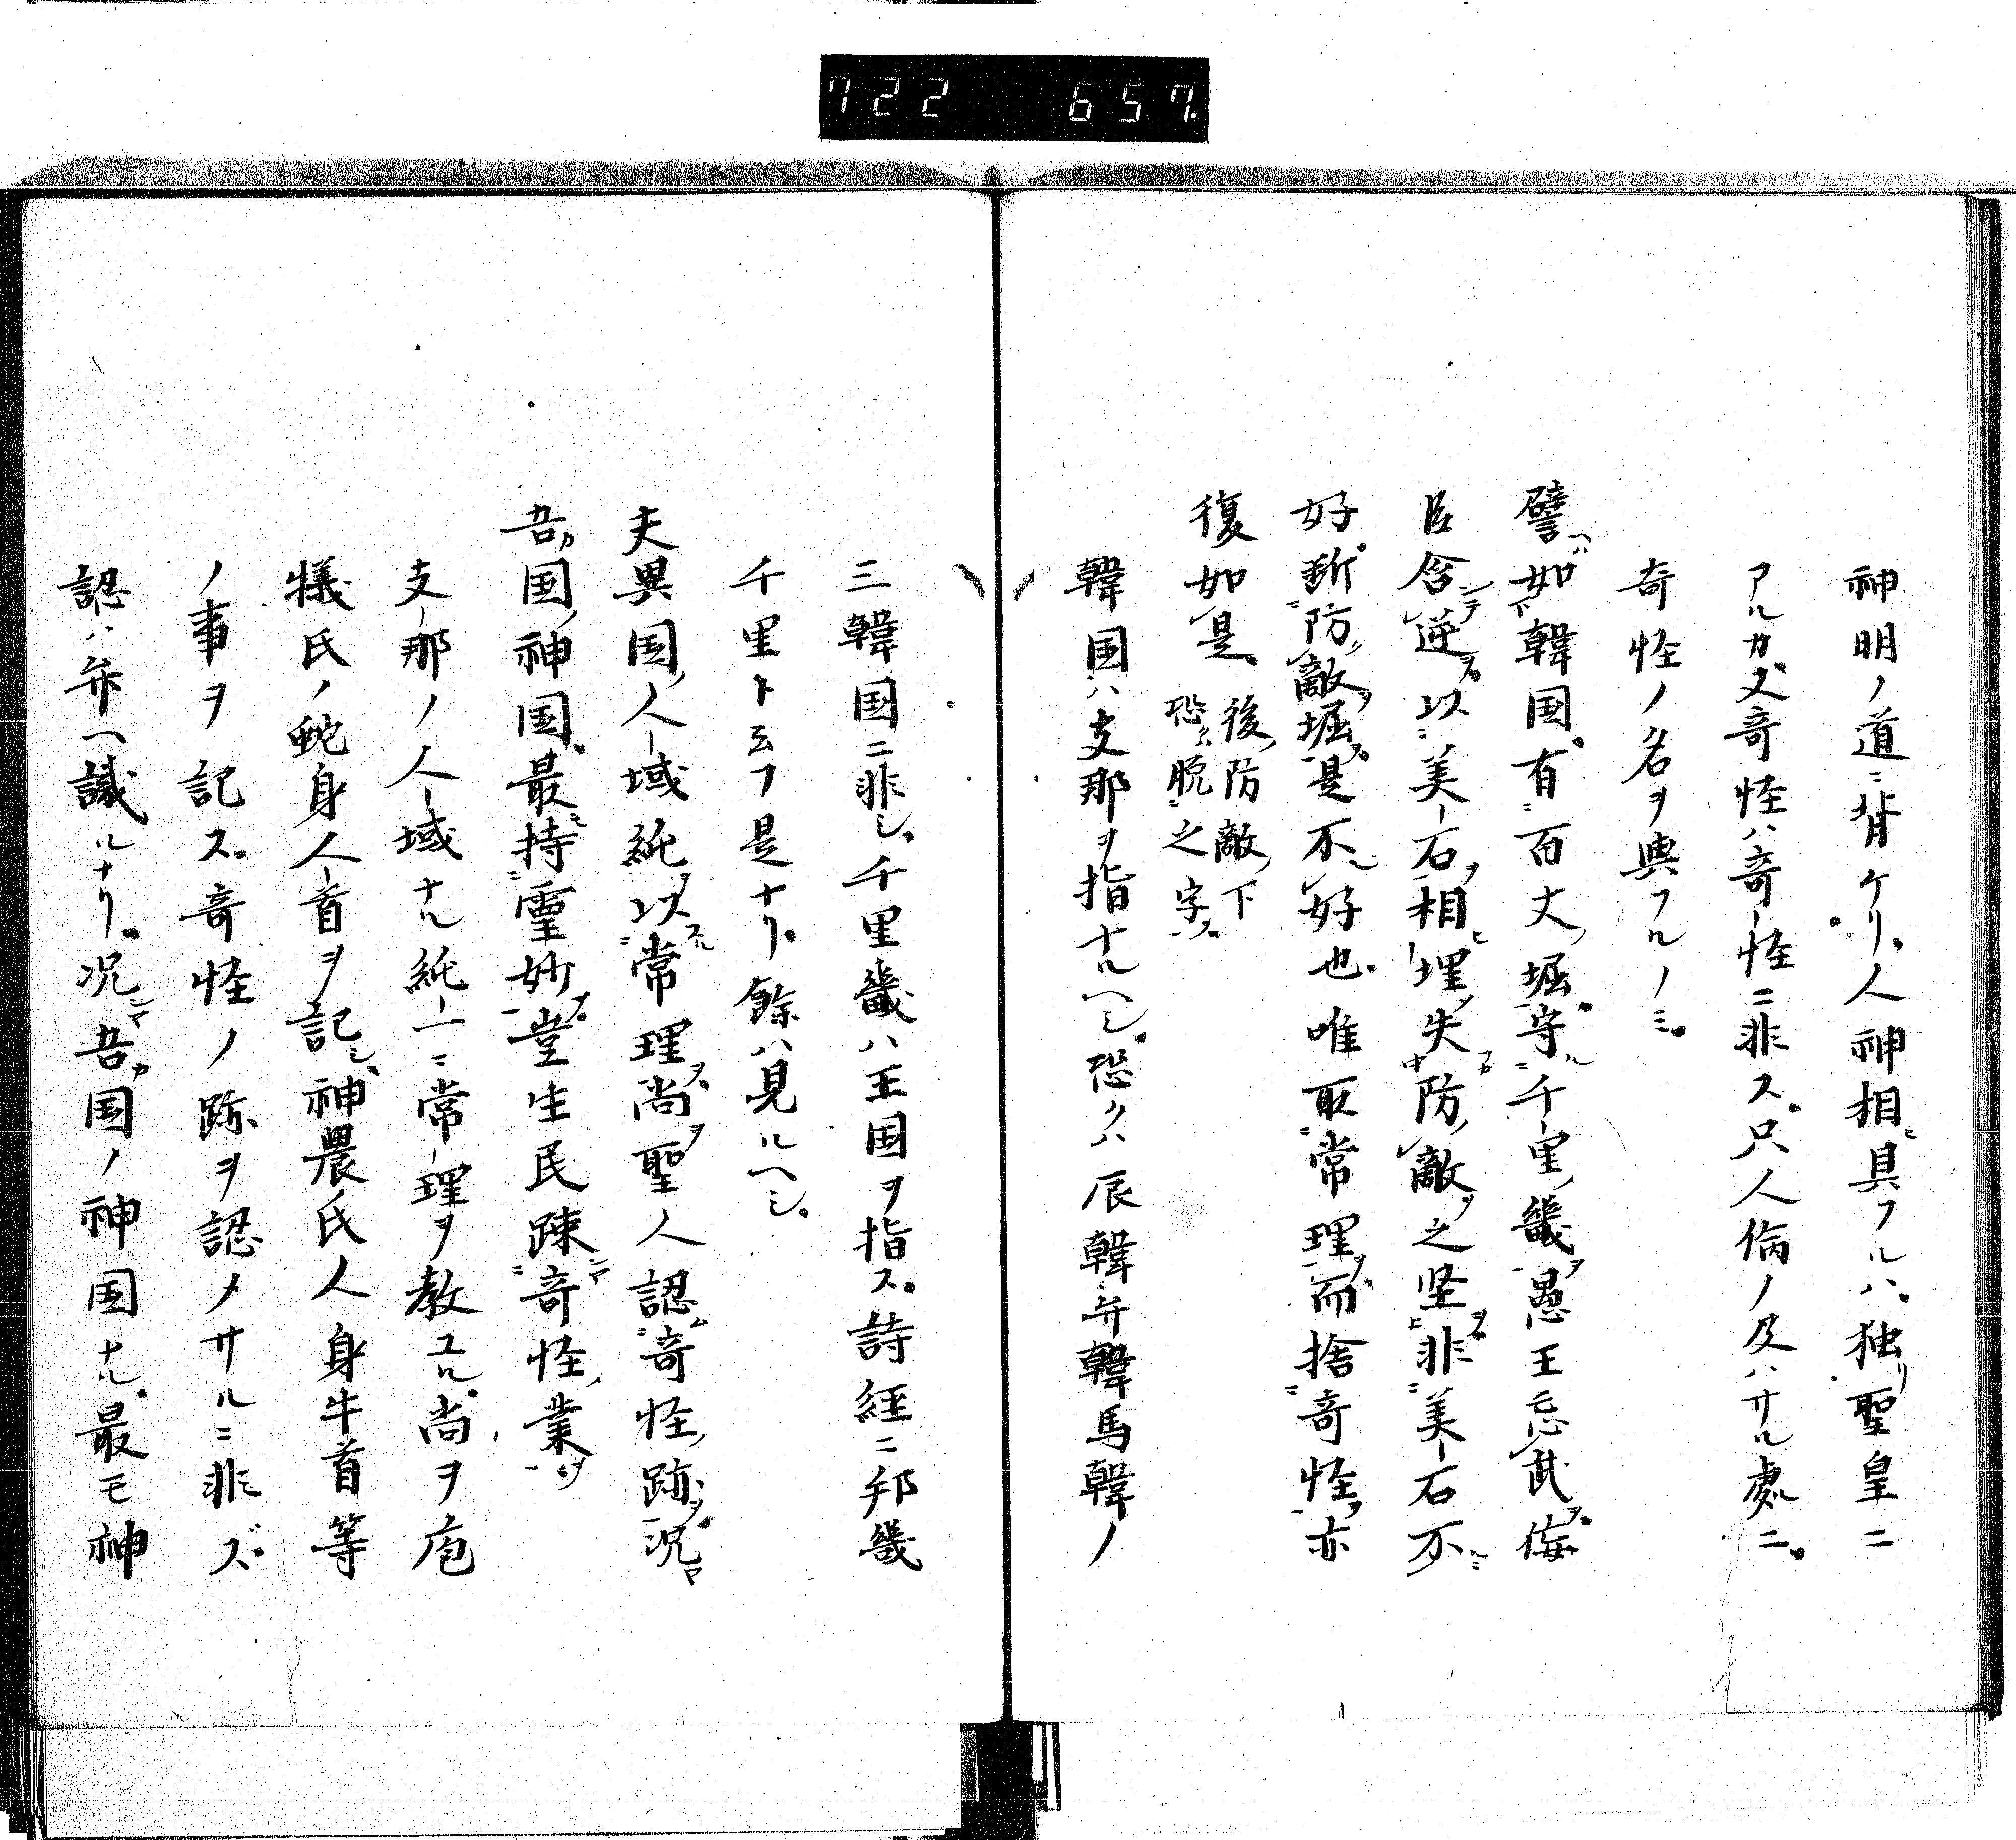 722 657
神明ノ道ニ背ケリ。人神相具フルハ。独リ聖皇ニ
アルカ。又奇怪ハ奇怪ニ非ス。只人倫ノ及ハサル處ニ。
奇怪ノ名ヲ與フルノミ。
譬如韓国。有百丈堀。守千里畿。愚王忘武。侫
臣含逆。以美石相埋。失防敵之堅。非美石不
好。斯防敵堀。是不好也。唯取常理。而捨奇怪。亦
復如是。
後防敵下
恐ハ脱之字。
韓国ハ支那ヲ指ナルヘシ。恐クハ辰韓弁韓馬韓ノ
三韓国ニ非シ。千里畿ハ王国ヲ指ス。詩経ニ邦畿
千里ト云フ是ナリ。餘ハ見ルヘシ。
夫異国人域純以常理。尚聖人認奇怪跡。況
吾国神国。最持霊妙。豈生民疎奇怪業。
支那ノ人域ナル純一ニ常理ヲ教ユル。尚ヲ庖
犠氏ノ蛇身人首ヲ記シ。神農氏人身牛首等
ノ事ヲ記ス。奇怪ノ跡ヲ認メサルニ非ズ。
認ハ弁へ識ルナリ。況マ吾カ国ノ神国ナル。最モ神